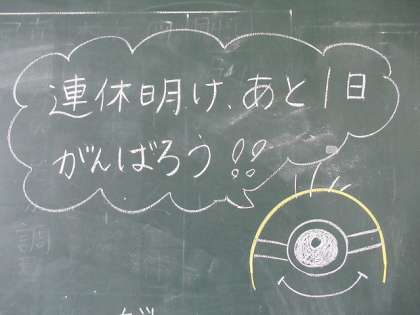 連休明け、あと1日
がんばろう!!
調